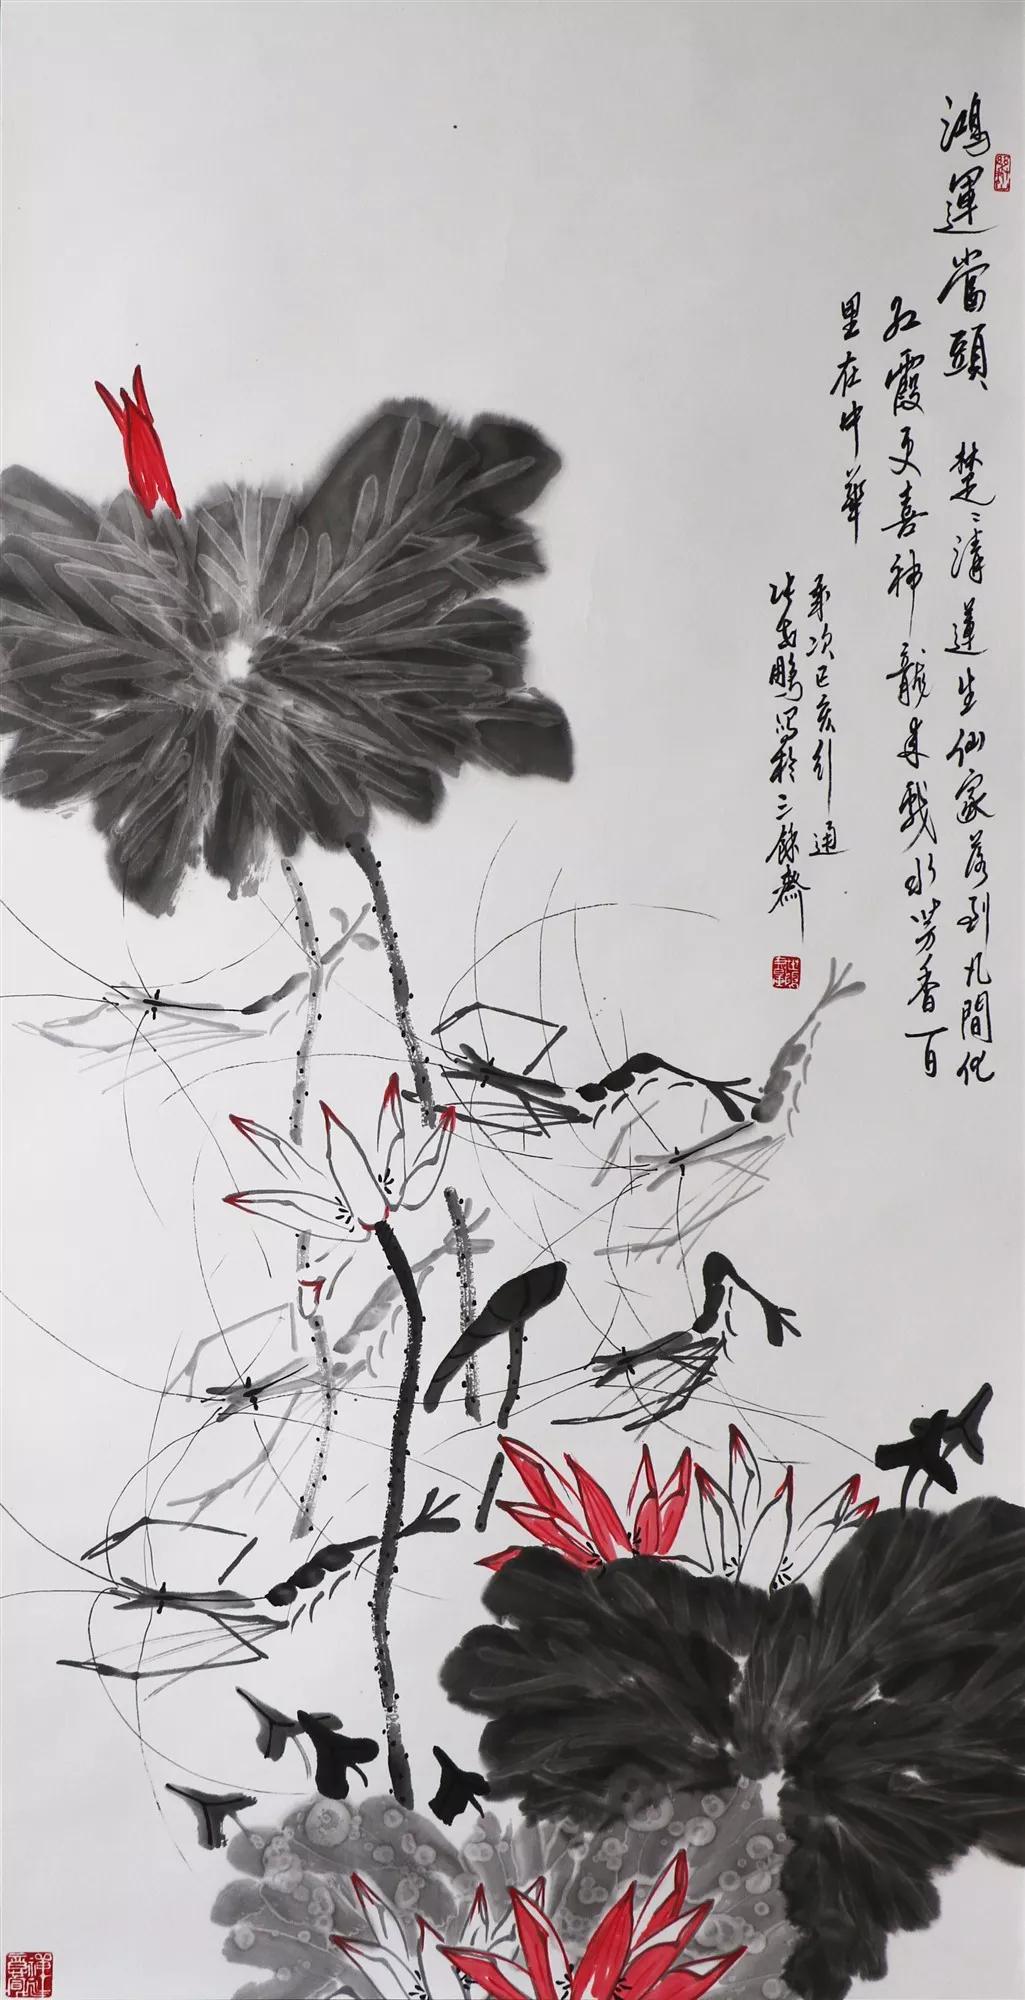 鴻運當頭 楚楚清蓮生仙家落到凡間化
紅霞更喜神龍來戲水芳香百
里在中華
歲次己亥引通
鵬寫於三餘齋